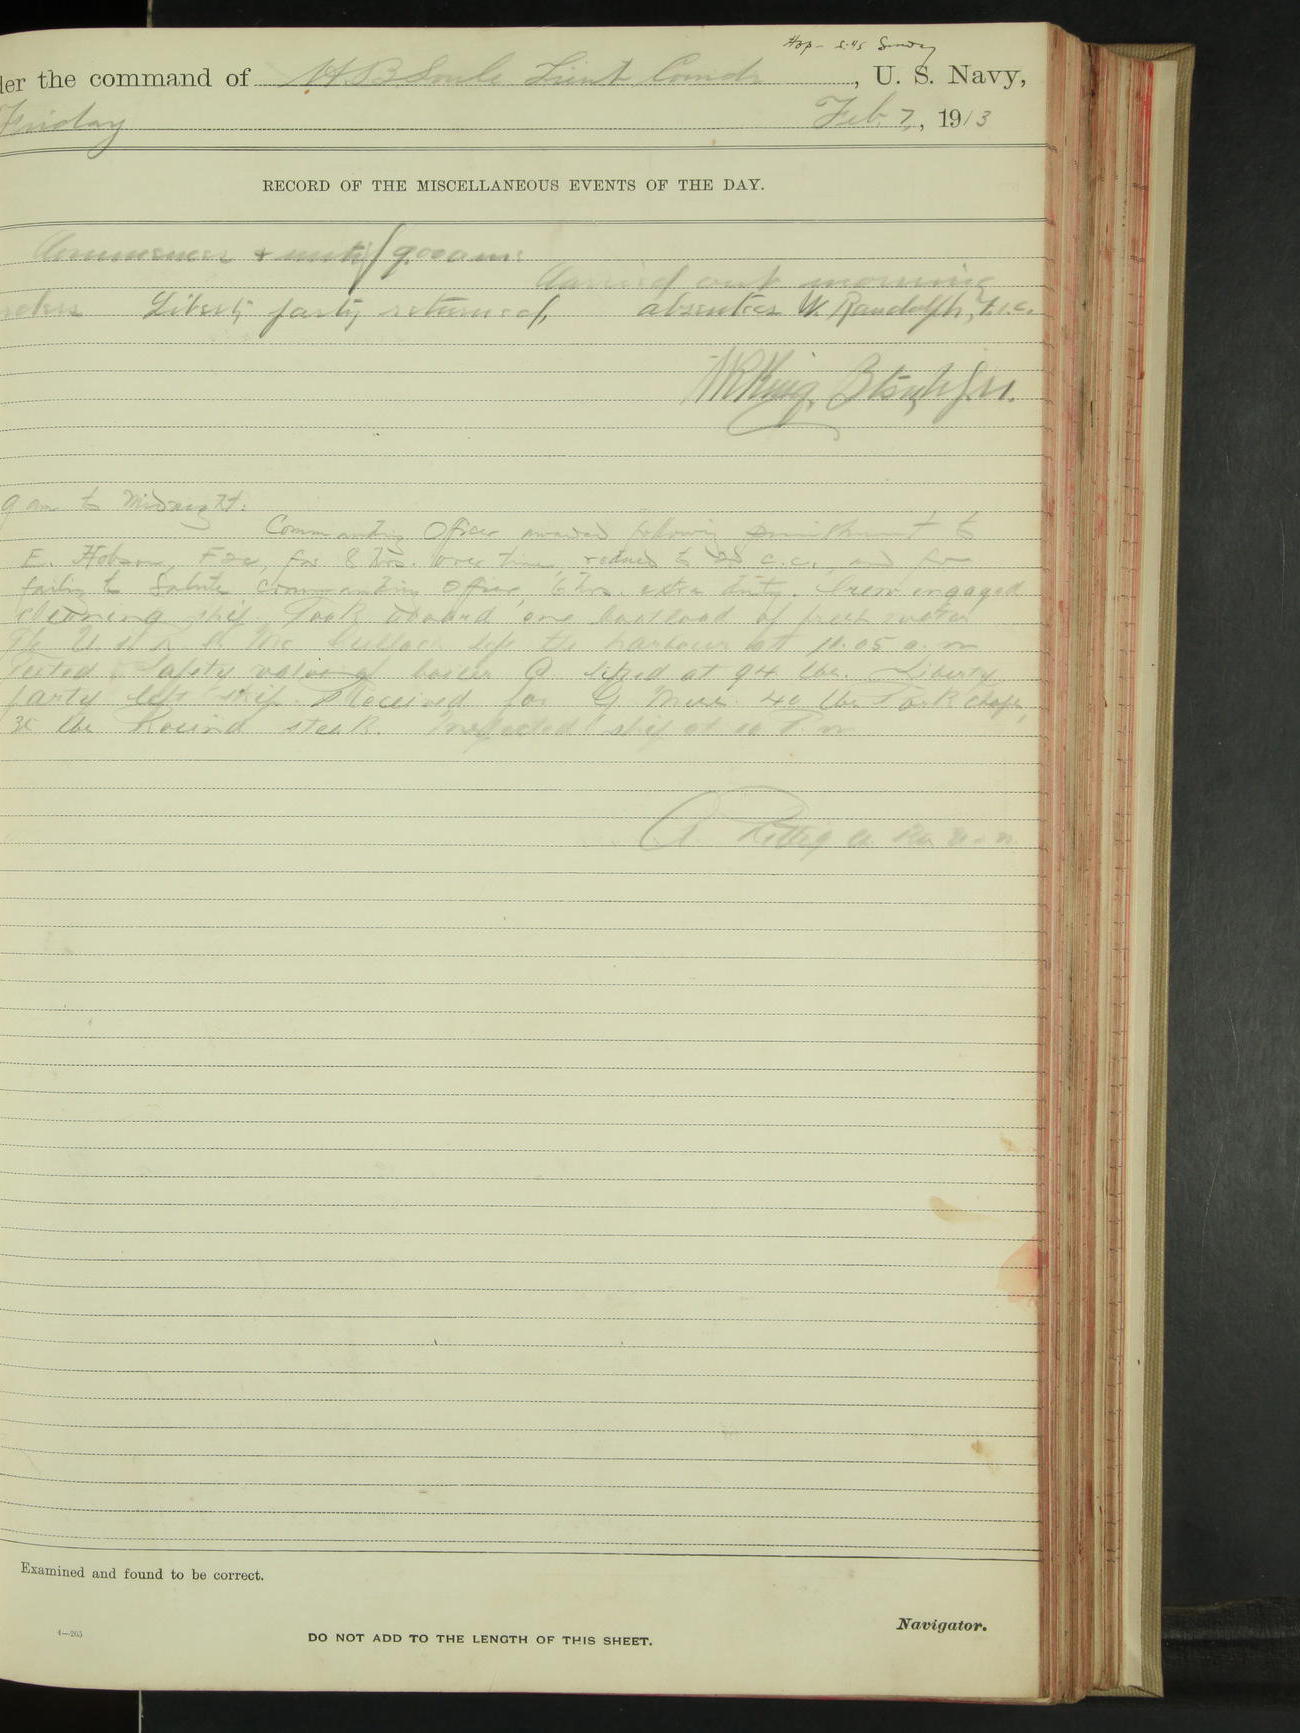 Hop - 5:45 Sunday
der the command of Lieut Comdr, U. S. Navy,
Friday Feb. 7, 1913
RECORD OF THE MISCELLANEOUS EVENTS OF THE DAY.
Commences & until 9.00 am:
Carried out morning
orders Liberty party returned, absentees W. Randolph, F.1.c.
King
9 am to Midnight:
Commanding Officer awarded following punishment to
E. Hobson, F2c, for 8 hrs. over time, reduced to 2d c.c., and for
failing to Salute Commanding Officer, 6 hrs. extra duty. Crew engaged
cleaning ship. Took aboard one boatload of fresh water
The U.S.R.S. Mc Cullach left the harbour at 11.05 a.m
Tested Safety valve of boiler lifted at 94 lbs. Liberty
party left ship. Received for G Mess 40 lbs Pork chops,
35 lbs Round steak. Inspected ship at 10 P.m
Examined and found to be correct.
Navigator.
4—265
DO NOT ADD TO THE LENGTH OF THIS SHEET.